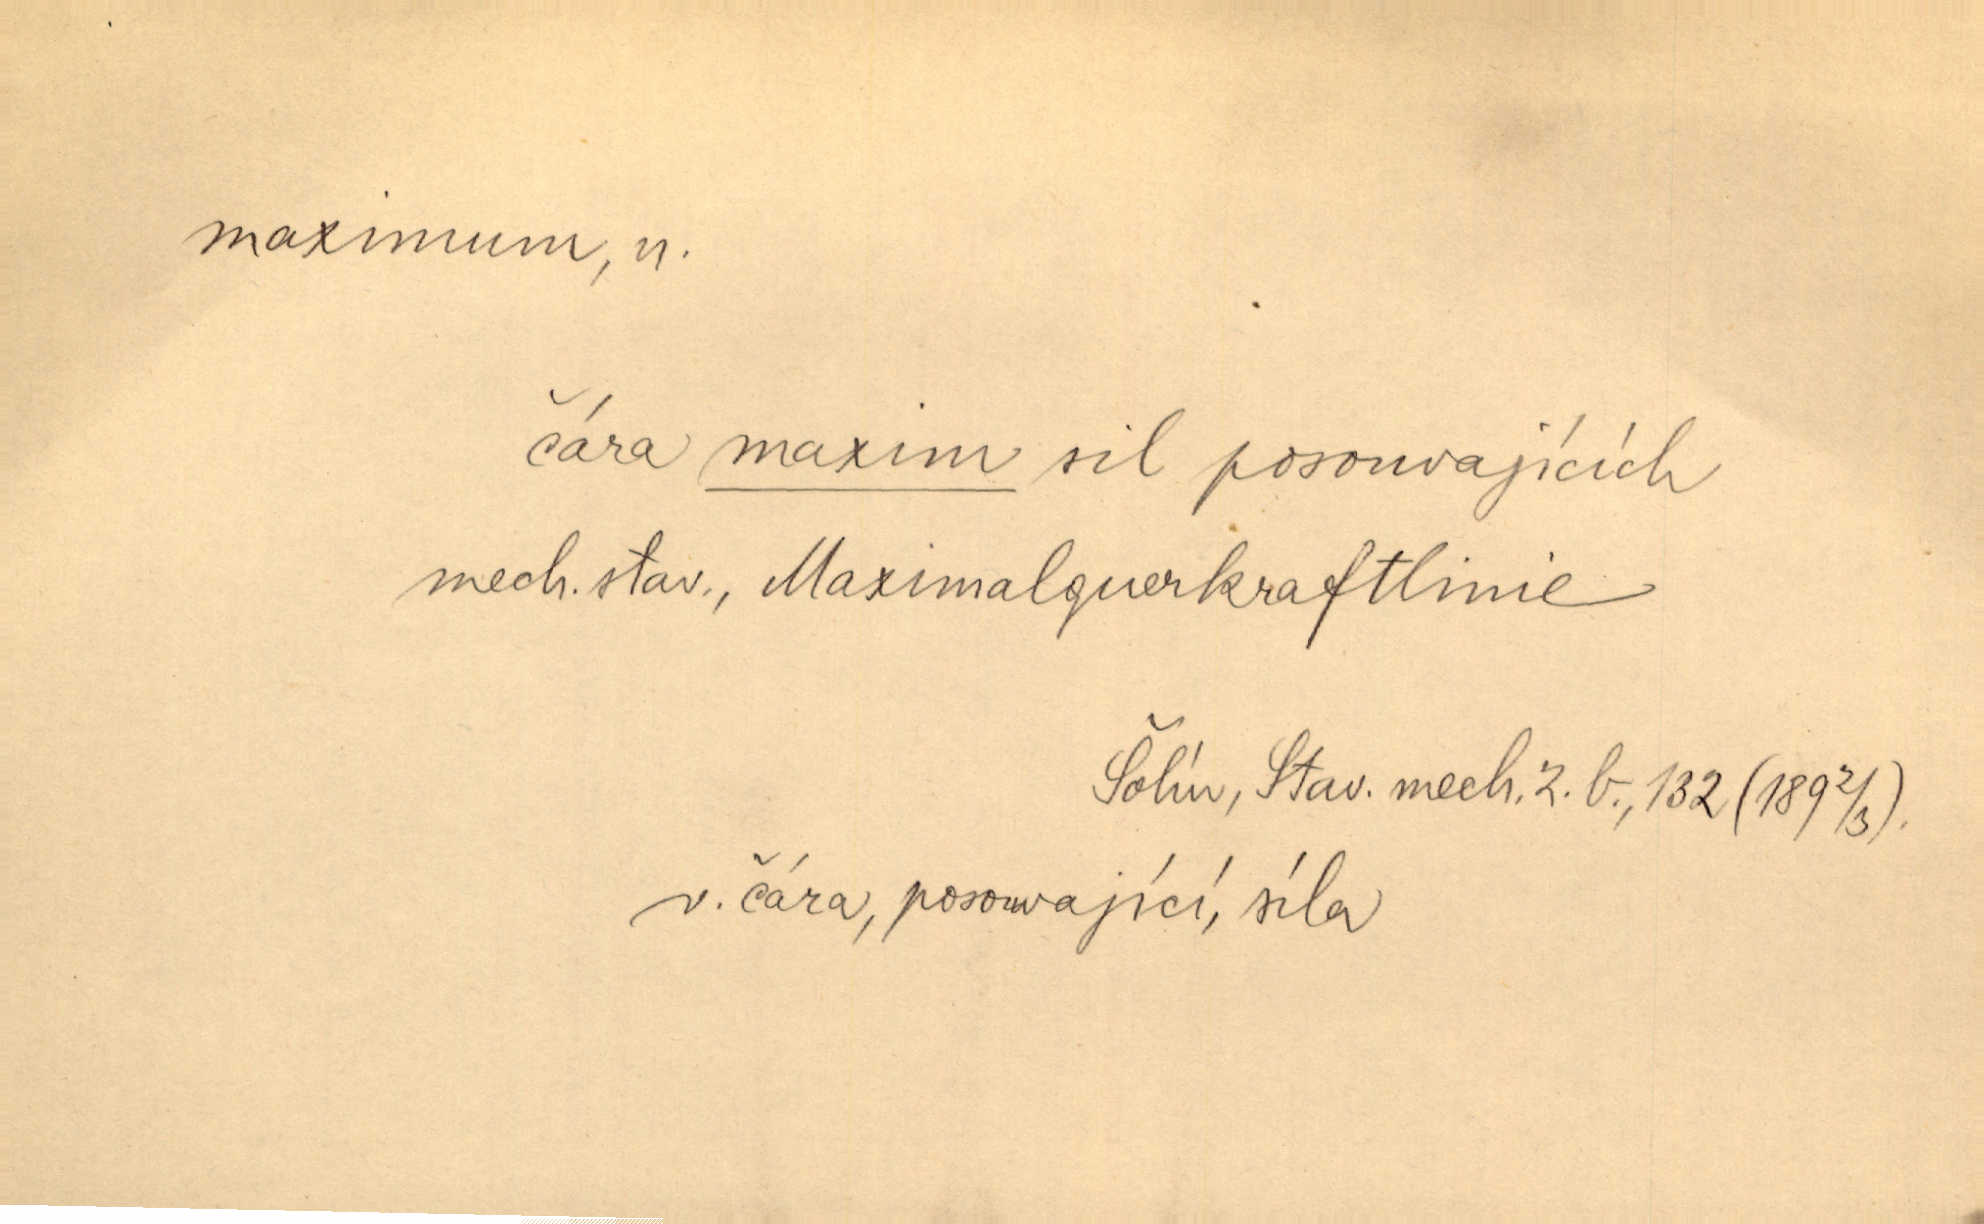 maximum, n.
čára maxim sil posouvajících
mech. stav., Maximalquerkraftlinie
Šolín, Stav. mech. 2. b., 132 (189 2/3).
v. čára, posouvající, síla